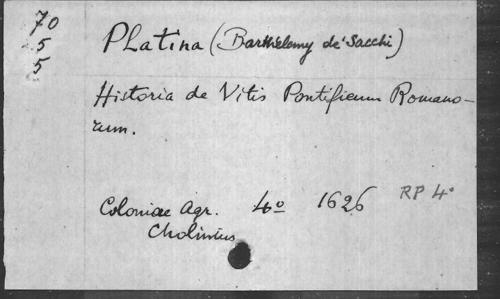 70
5
5
Platina (Barthélemy de' Sacchi)
Historia de Vitis Pontificum Romano-
rum.
Coloniae Agr. 4º 1626 RP 4º
Cholinius